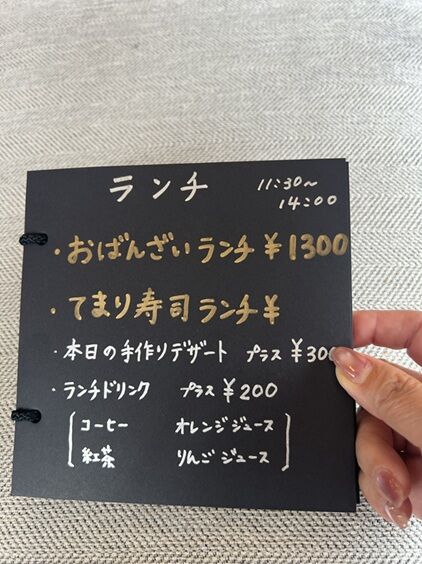 ランチ 11:30～
14:00
・おばんざいランチ ¥1300
・てまり寿司ランチ ¥
・本日の手作りデザート プラス ¥300
・ランチドリンク プラス ¥200
コーヒー オレンジジュース
紅茶 りんごジュース